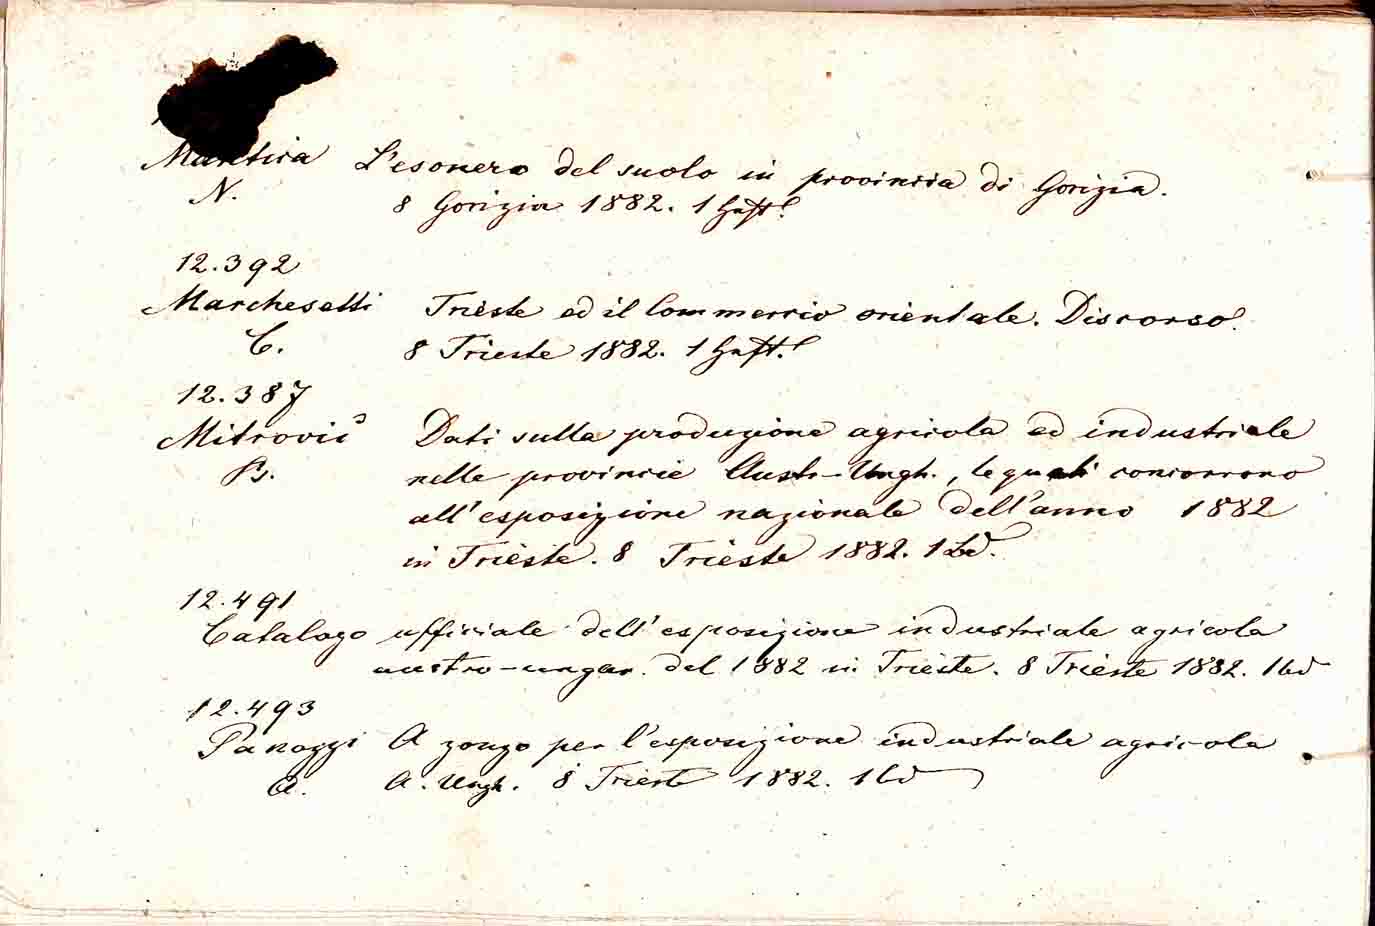 Mantica L'esonero del suolo in provincia di Gorizia.
N. 8 Gorizia 1882. 1 Heft.
12.392
Marchesetti Trieste ed il Commercio orientale. Discorso.
C. 8 Trieste 1882. 1 Heft.
12.387
Mitrović Dati sulla produzione agricola ed industriale
B. nelle provincie Austr-Ungh., le quali concorrono
all'esposizione nazionale dell'anno 1882
in Trieste. 8 Trieste 1882. 1 Bd.
12.491
Catalogo ufficiale dell'esposizione industriale agricola
austro-ungar. del 1882 in Trieste. 8 Trieste 1882. 1 bd
12.493
A zonzo per l'esposizione industriale agricola
A. A. Ungh. 8 Trieste 1882. 1 bd